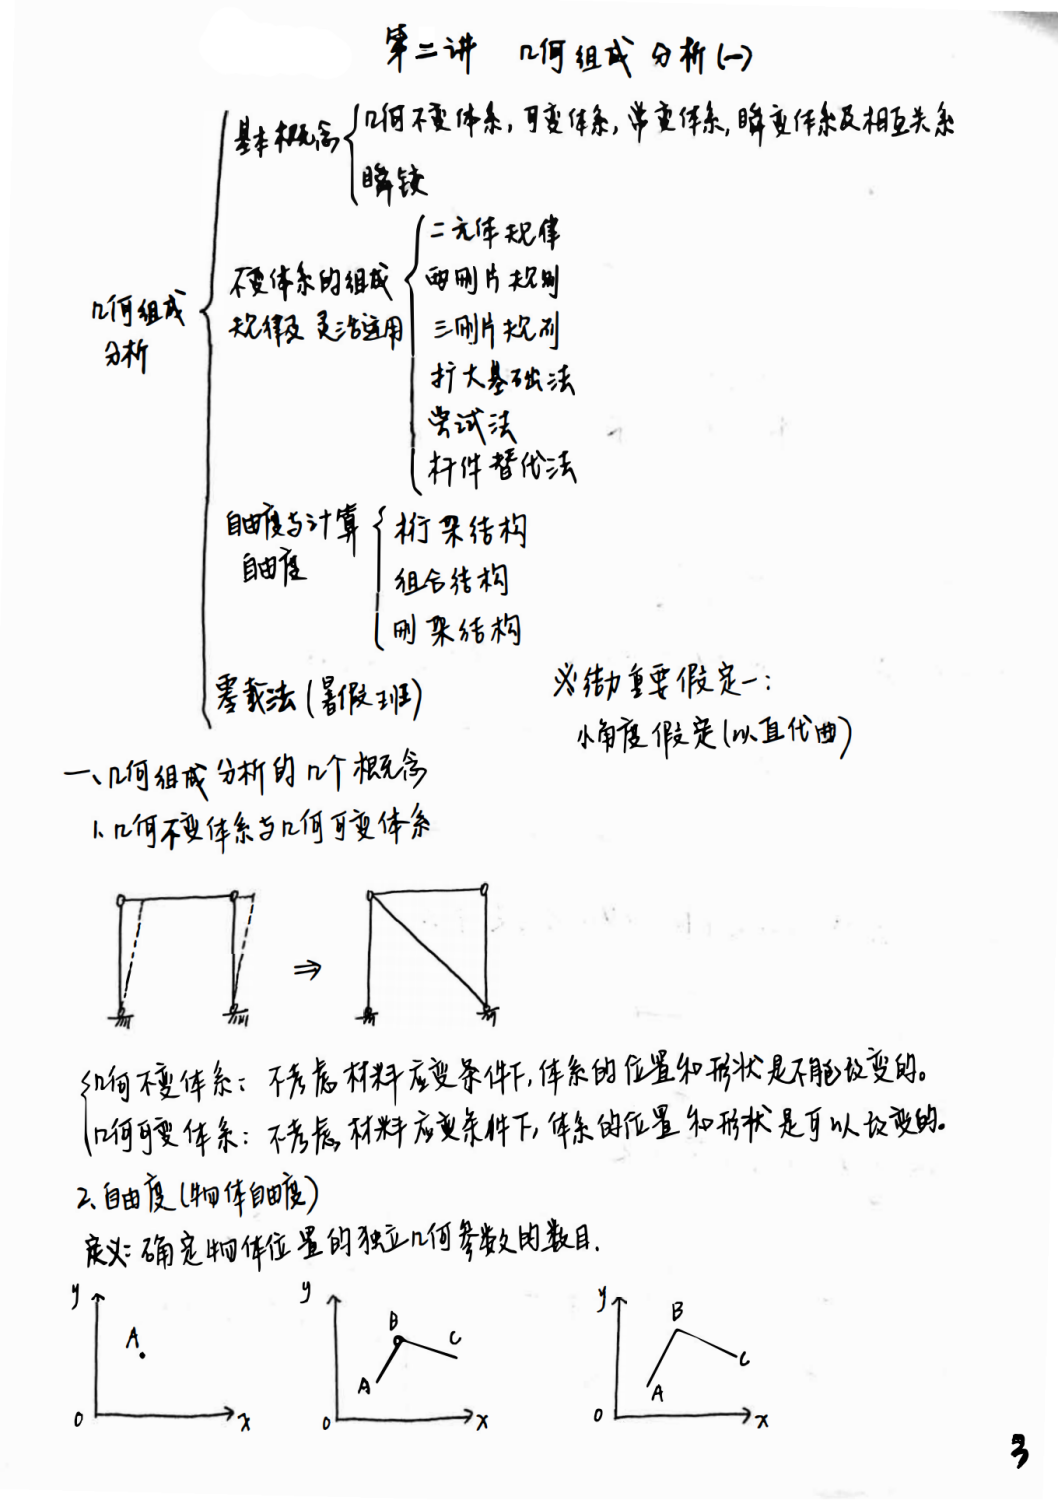 第二讲 几何组成分析(一)
基本概念
几何不变体系,可变体系,常变体系,瞬变体系及相互关系
瞬铰
几何组成
分析
不变体系的组成
规律及灵活运用
二元体规律
两刚片规则
三刚片规则
扩大基础法
尝试法
杆件替代法
自由度与计算
自由度
桁架结构
组合结构
刚架结构
零载法(暑假班)
※结力重要假定一:
小角度假定(以直代曲)
一、几何组成分析的几个概念
1、几何不变体系与几何可变体系
⇒
几何不变体系:不考虑材料应变条件下,体系的位置和形状是不能改变的。
几何可变体系:不考虑材料应变条件下,体系的位置和形状是可以改变的。
2、自由度(物体自由度)
定义:确定物体位置的独立几何参数的数目.
y A O x
y B C A O x
y B C A O x
3